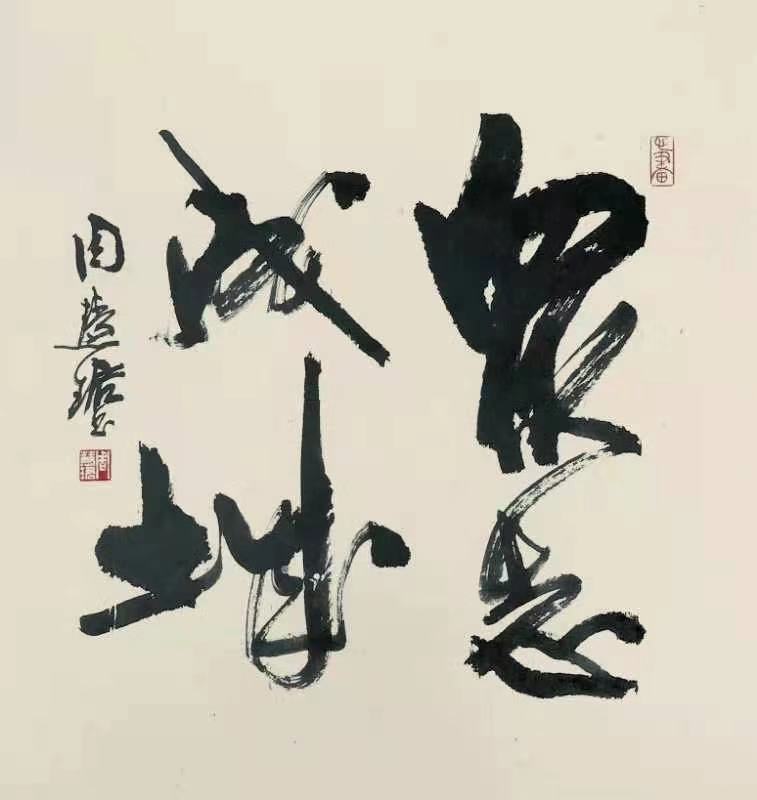 眾志
成城
周慧珺